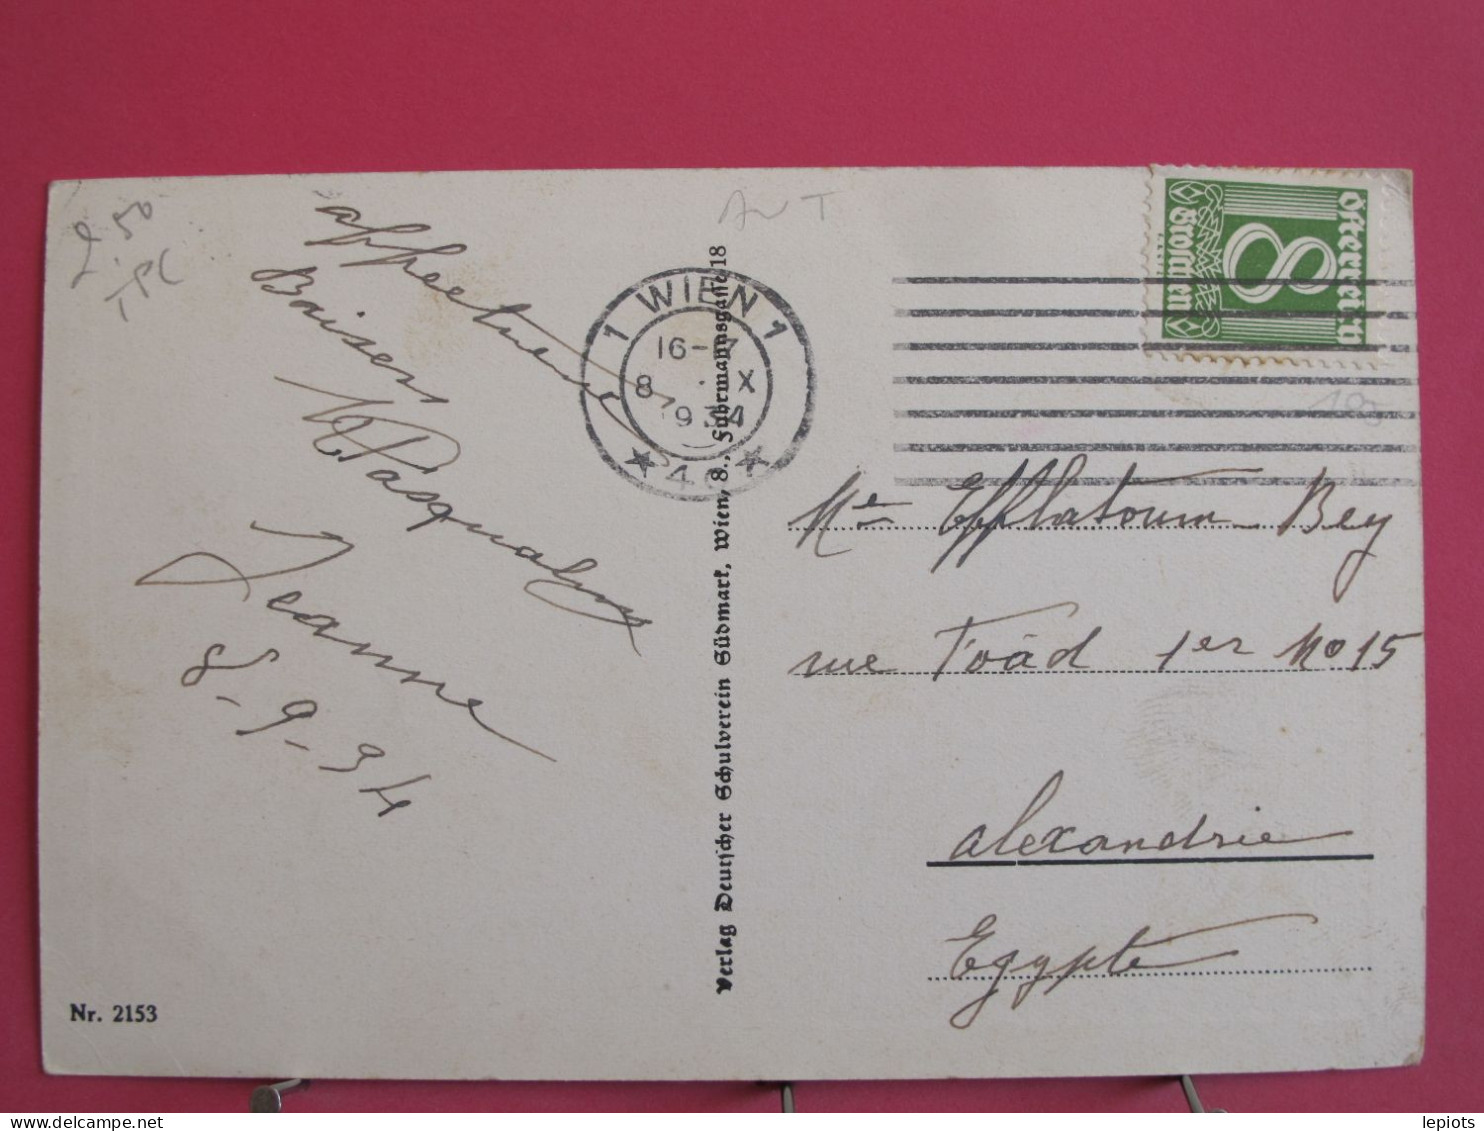 2.50
TPC
affectueux
Baisers
Pasqualy
Jeanne
8-9-34
Nr. 2153
Verlag Deutscher Schulverein Südmark, Wien, 8., Fuhrmannsgasse 18
AUT
1 WIEN 1
16-17
8 . X
1934
★ 4 ★
Österreich
8
Groschen
Me Efflatoum Bey
rue Foäd 1er No 15
Alexandrie
Egypte
lepiots